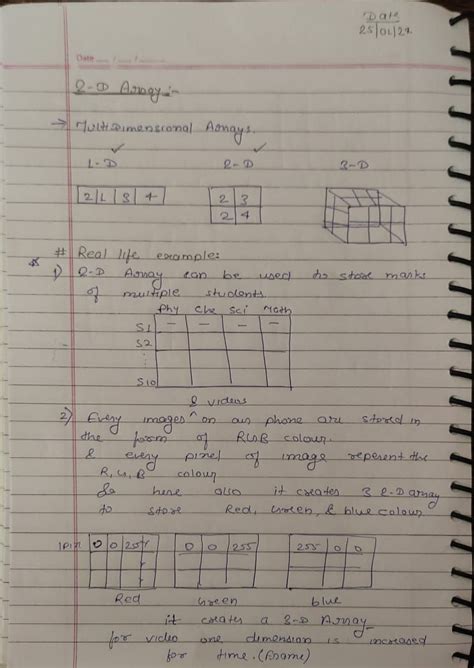 Date
25/01/22
Date
2-D Array :-
→ Multidimensional Arrays.
1-D 2-D 3-D
2 1 3 4
2 3
2 4
# Real life example:
1) 2-D Array can be used to store marks
of multiple students
Phy Che Sci Math
S1 - - - -
S2
S10
& videos
2) Every images ^ on our phone are stored in
the form of RGB colour.
& every pixel of image reperent the
R, G, B colour
So here also it creates 3 2-D array
to store Red, Green, & blue colour
1pix 0 0 255 0 0 255 255 0 0
Red Green blue
it creates a 3-D Array
for video one dimension is increased
for time. (frame)